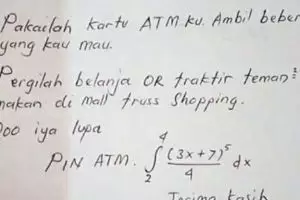 Pakailah kartu ATM ku. Ambil beber
yang kau mau.
Pergilah belanja OR traktir teman²
makan di mall truss Shopping.
Ooo iya lupa
PIN ATM. ∫₂⁴ (3x+7)⁵/4 dx
Terima kasih